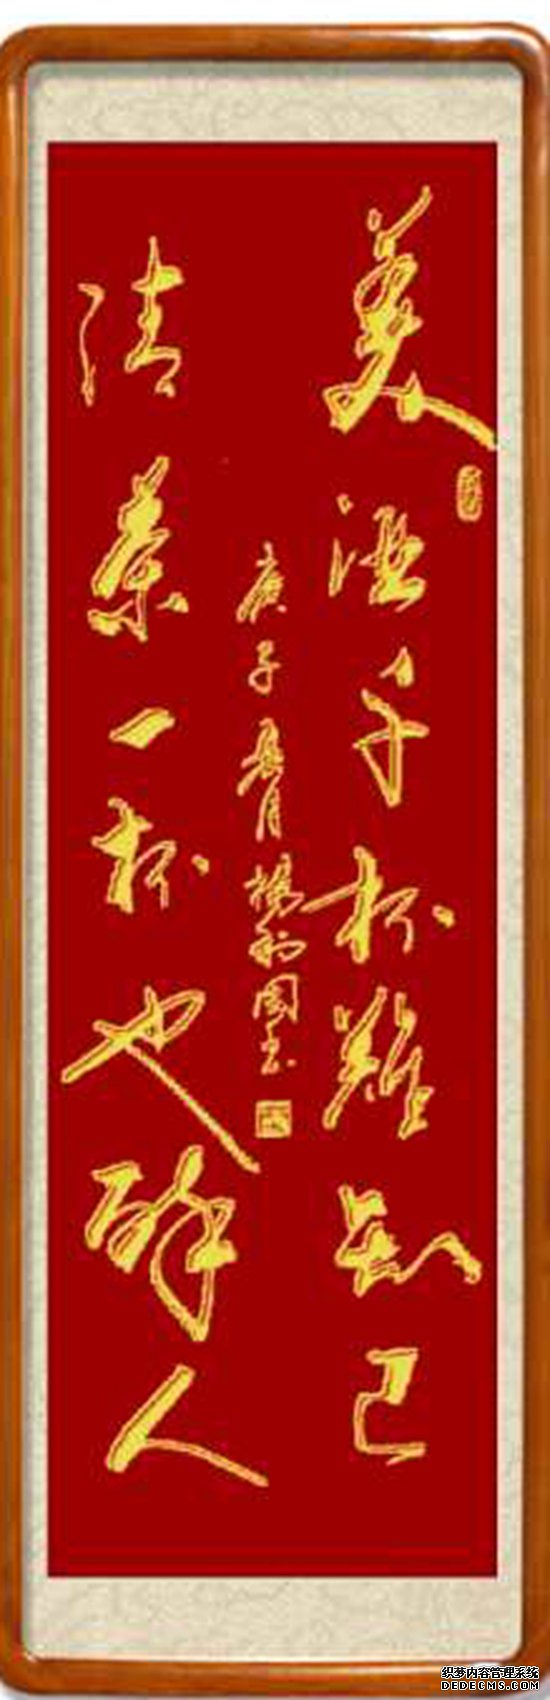 美酒千杯難知己
清茶一杯也醉人
庚子辰月楊利国书
织梦内容管理系统
DEDECMS.COM